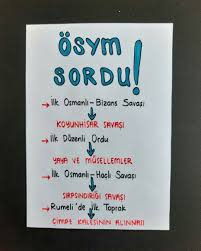 ÖSYM
SORDU!
İlk Osmanlı-Bizans Savaşı
KOYUNHİSAR SAVAŞI
İlk Düzenli Ordu
YAYA VE MÜSELLEMLER
İlk Osmanlı-Haçlı Savaşı
SIRPSINDIĞI SAVAŞI
Rumeli'de ilk Toprak
ÇİMPE KALESİNİN ALINMASI